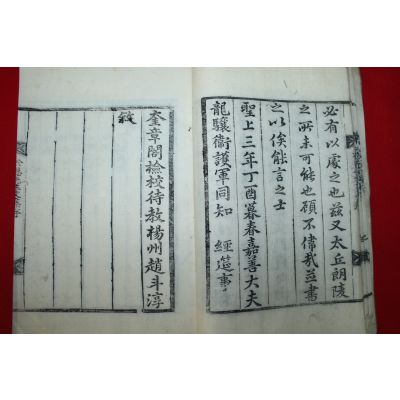 必有以處之也茲又太丘朗陵
之所未可能也顧不偉哉並書
之以俟能言之士
聖上三年丁酉暮春嘉善大夫
龍驤衛護軍同知 經筵事
奎章閣檢校待教楊州趙斗淳
敍